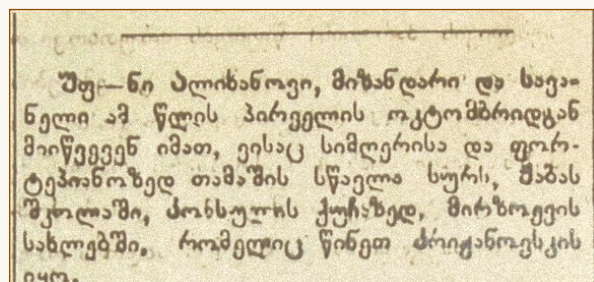 უფ—ნი ალიხანოვი, მიზანდარი და სავა-
ნელი ამ წლის პირველის ოკტომბრიდგან
მიიწვევენ იმათ, ვისაც სიმღერისა და ფორ-
ტეპიანოზედ თამაშის სწავლა სურს, შაბას
შკოლაში, კონსულის ქუჩაზედ, მირზოევის
სახლებში, რომელიც წინეთ
იყო.